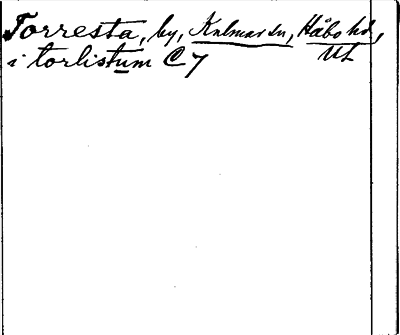 Torresta, by, Kalmar sn, Håbo hd,
Ul
i torlistum C 7